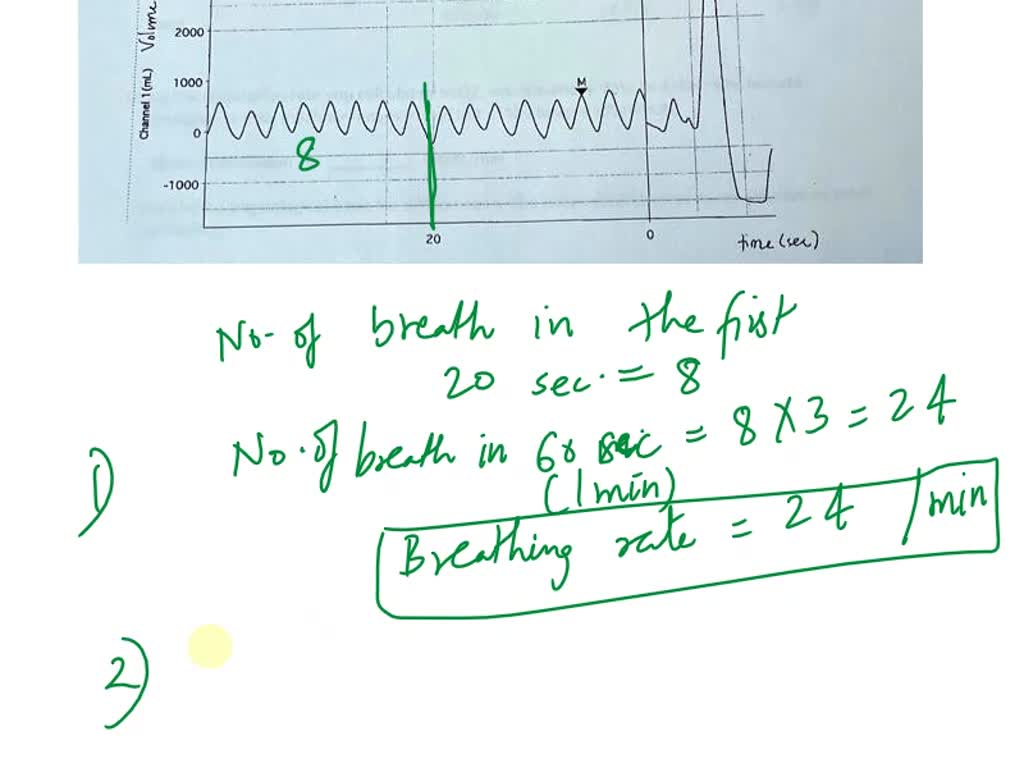 Channel 1 (mL) Volume
2000
1000
0
-1000
M
8
20
0
time (sec)
No. of breath in the first
20 sec. = 8
1) No. of breath in 60 sec = 8 X 3 = 24
(1 min)
Breathing rate = 24 /min
2)